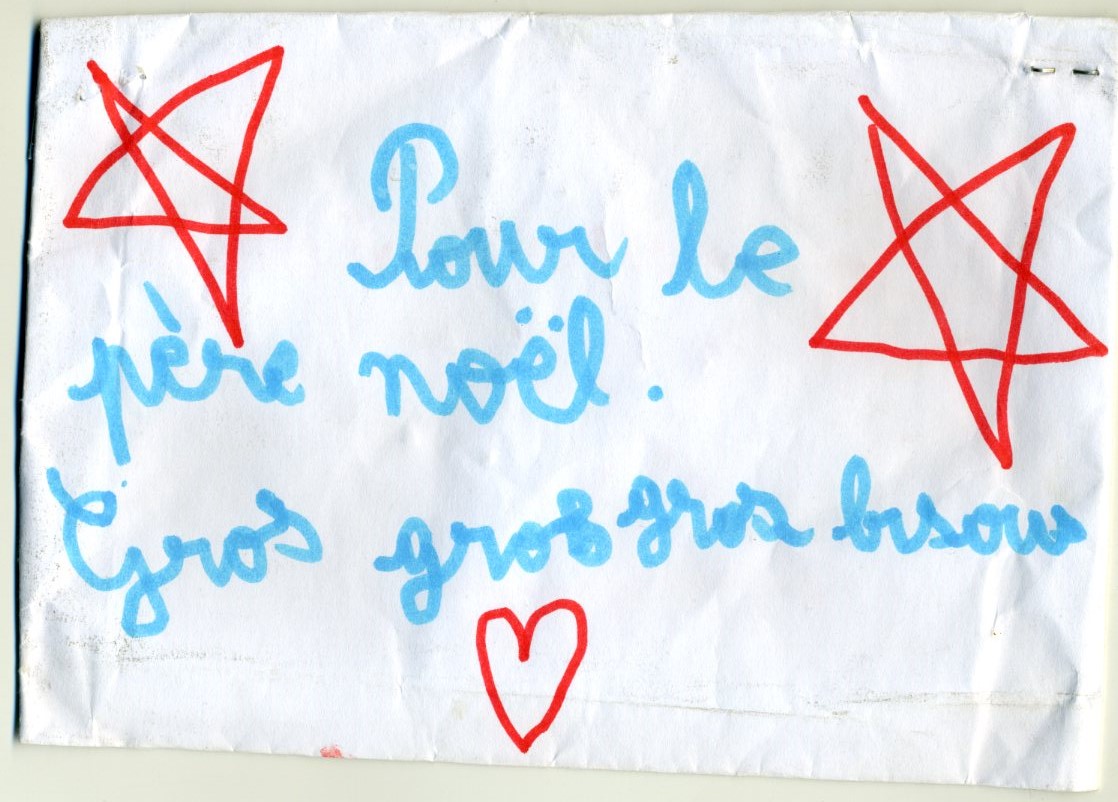 Pour le
père noël.
Gros gros gros bisous